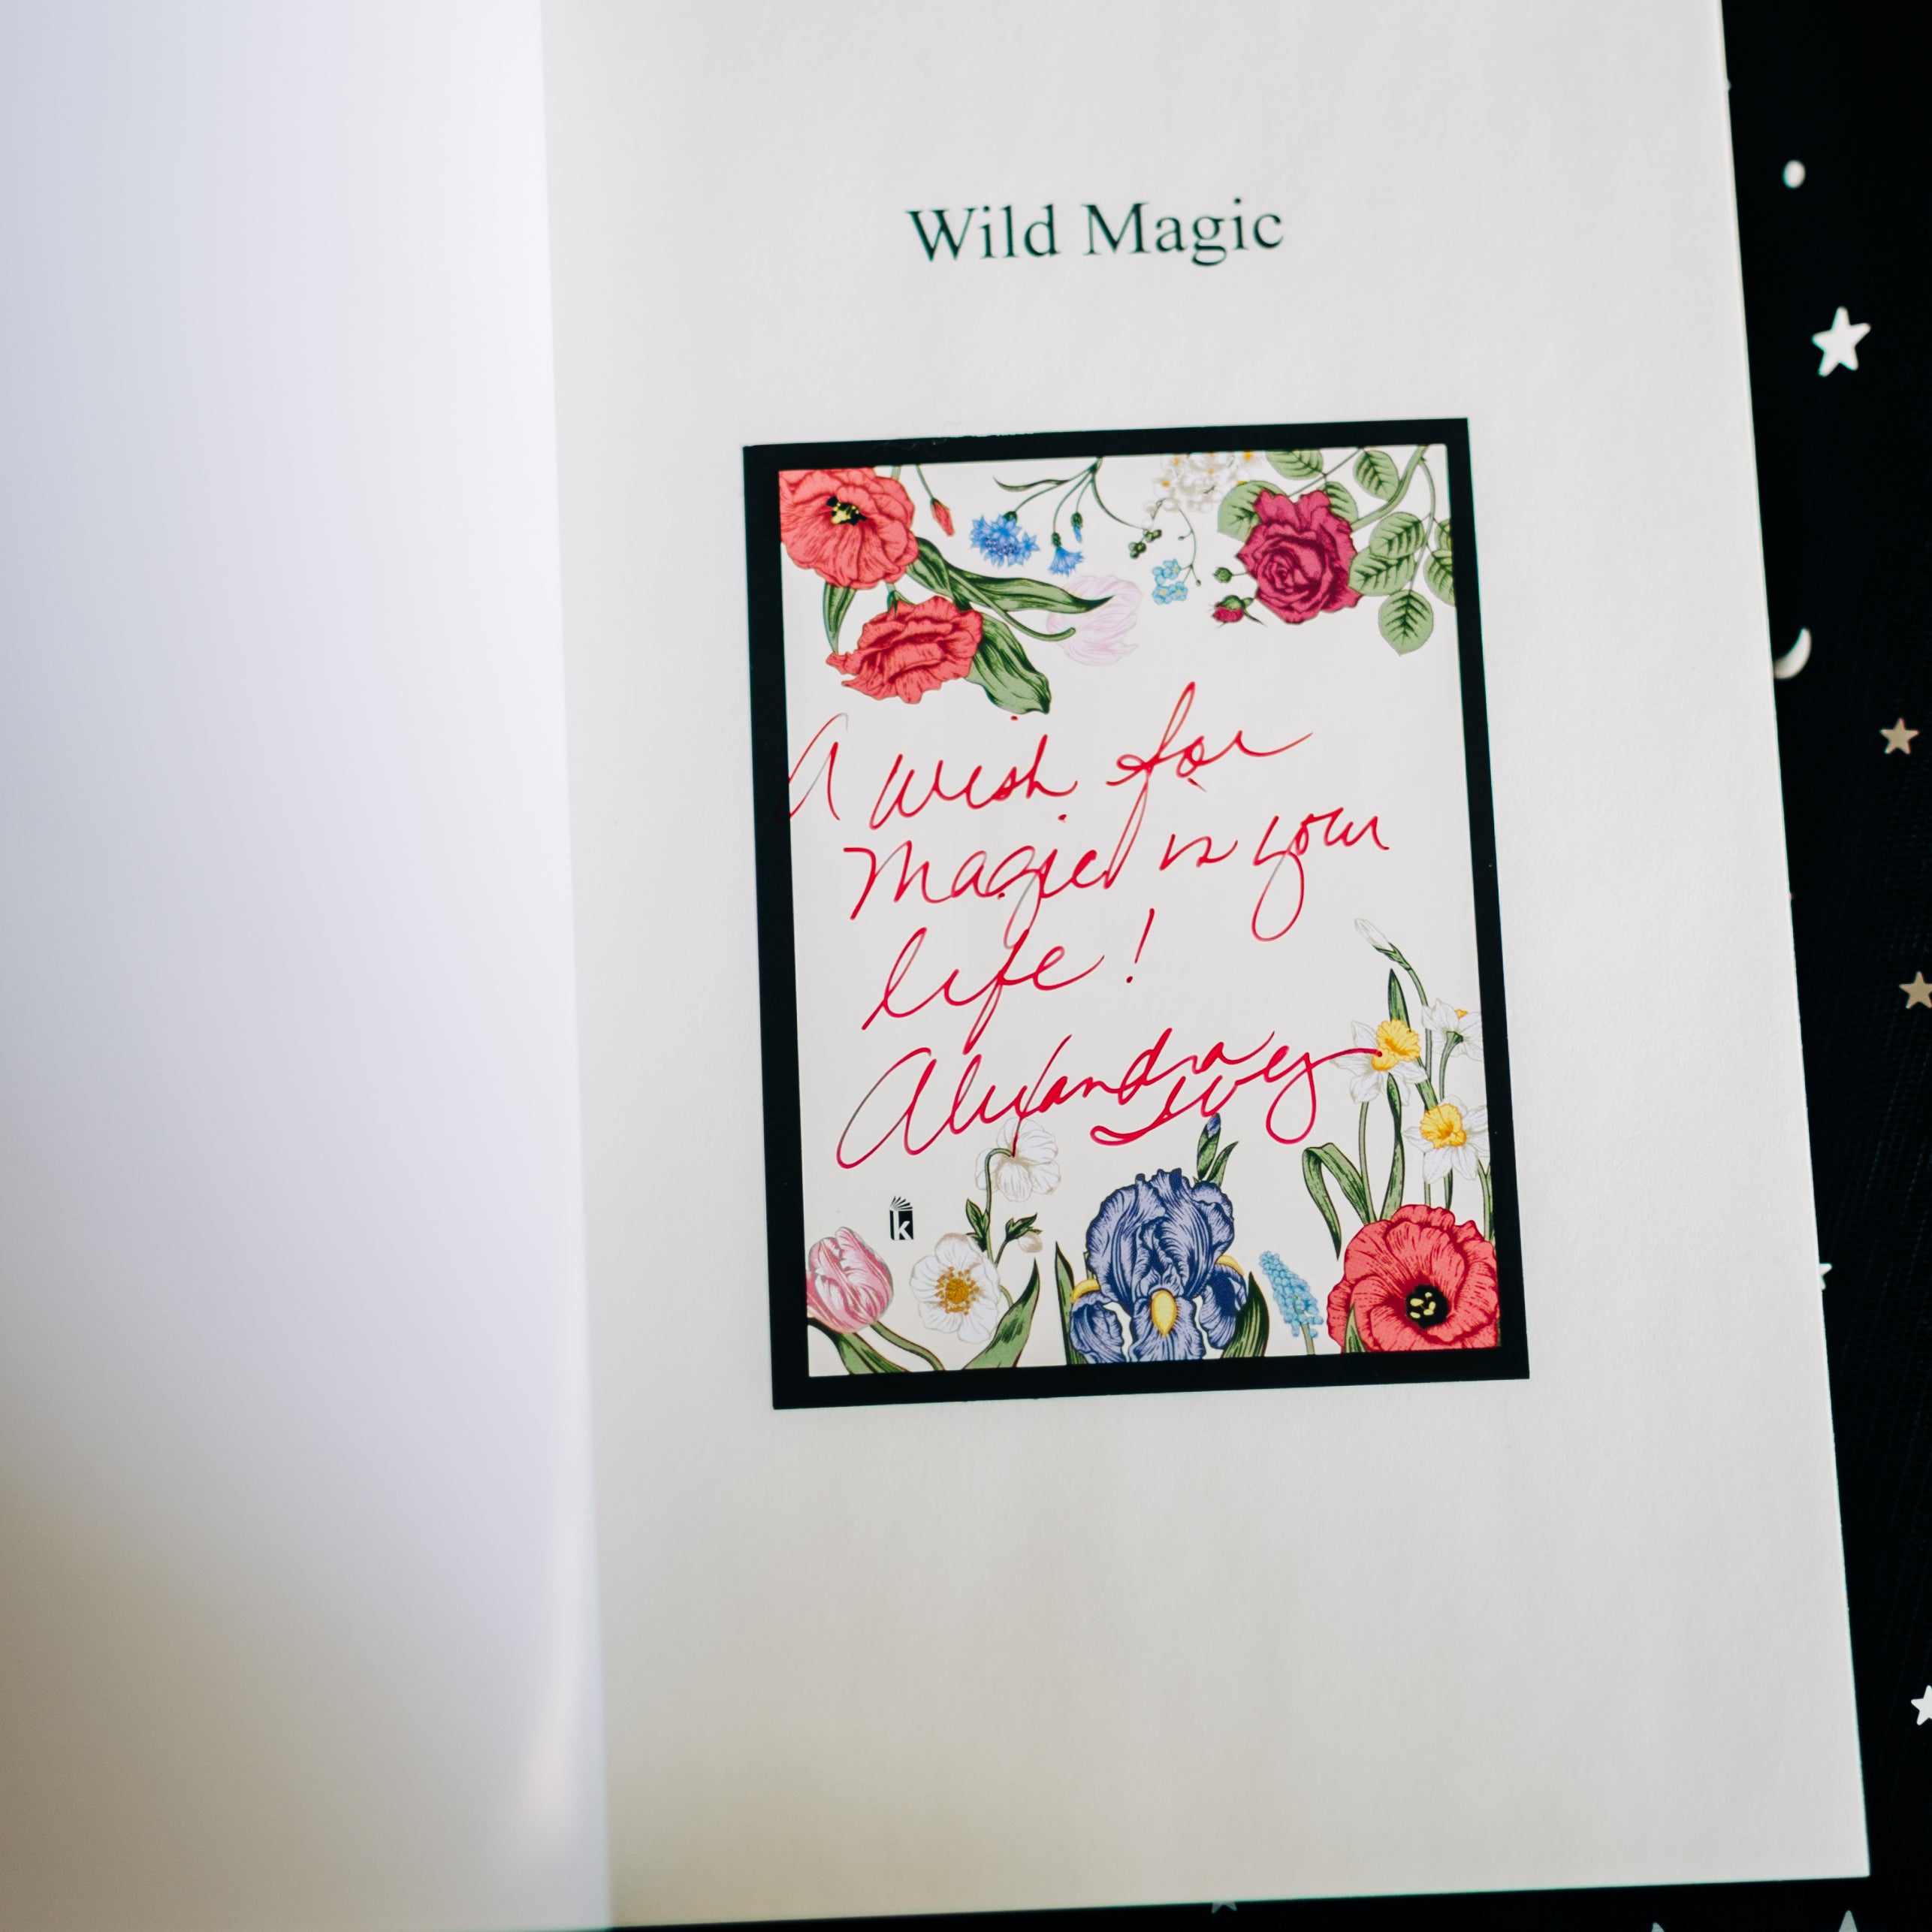 Wild Magic
A wish for
Magic in your
life!
Alexandra
Ivy
k